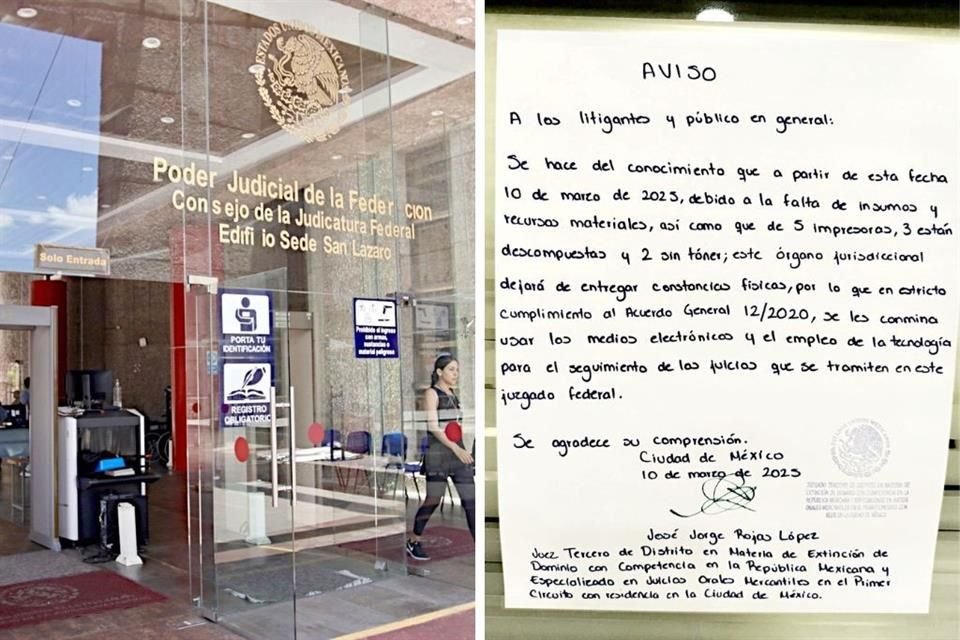 ESTADOS UNIDOS MEXICANOS
Poder Judicial de la Feder cion
Cons ejo de la Judicatura Federal
Edifi io Sede San Lazaro
Solo Entrada
PORTA TU
IDENTIFICACIÓN
REGISTRO
OBLIGATORIO
Prohibido el ingreso
con armas,
sustancias o
material peligroso
AVISO
A los litigantes y público en general:
Se hace del conocimiento que a partir de esta fecha
10 de marzo de 2025, debido a la falta de insumos y
recursos materiales, así como que de 5 impresoras, 3 están
descompuestas y 2 sin tóner; este órgano jurisdiccional
dejará de entregar constancias físicas, por lo que en estricto
cumplimiento al Acuerdo General 12/2020, se les conmina
usar los medios electrónicos y el empleo de la tecnología
para el seguimiento de los juicios que se tramiten en este
juzgado federal.
Se agradece su comprensión.
Ciudad de México
10 de marzo de 2025
JUZGADO TERCERO DE DISTRITO EN MATERIA DE
EXTINCIÓN DE DOMINIO CON COMPETENCIA EN LA
REPÚBLICA MEXICANA Y ESPECIALIZADO EN JUICIOS
ORALES MERCANTILES EN EL PRIMER CIRCUITO CON
SEDE EN LA CIUDAD DE MÉXICO
José Jorge Rojas López
Juez Tercero de Distrito en Materia de Extinción de
Dominio con Competencia en la República Mexicana y
Especializado en Juicios Orales Mercantiles en el Primer
Circuito con residencia en la Ciudad de México.